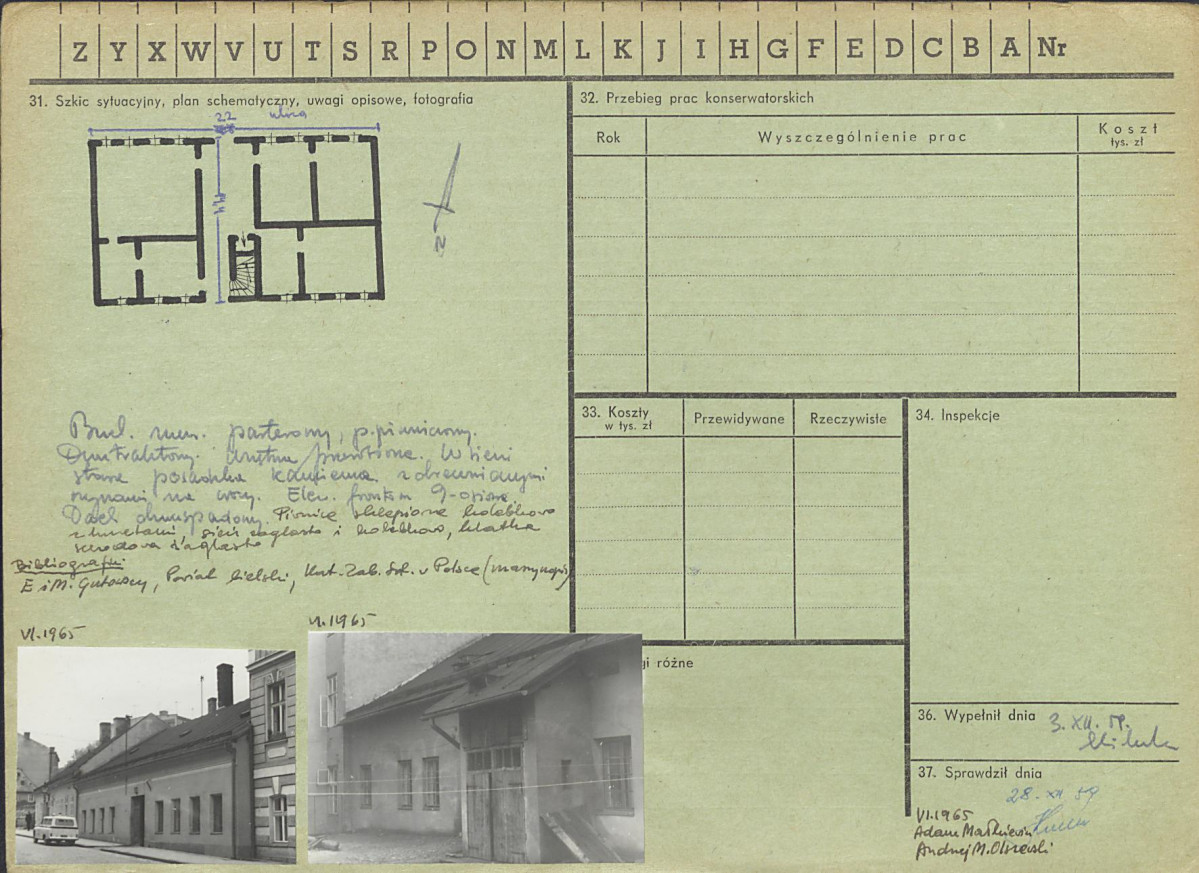 Z Y X W V U T S R P O N M L K J I H G F E D C B A Nr
31. Szkic sytuacyjny, plan schematyczny, uwagi opisowe, fotografia
22 ulica
14,4
N
Bud. mur. parterowy, p.piwniczony.
Dwutraktowy. Wnętrza przerobione. W sieni
stara posadzka kamienna z drewnianymi
rynnami na wozy. Elew. frontem 9-osiowa
Dach dwuspadowy. Piwnice sklepione kolebkowo
z lunetami, sień żaglasto i kolebkowo, klatka
schodowa żaglasto
Bibliografia
E i M. Gutowscy, Powiat bielski, Kat. Zab. Szt. w Polsce (manuskopis)
VI.1965
VI.1965
32. Przebieg prac konserwatorskich
Rok
Wyszczególnienie prac
Koszt
tys. zł
33. Koszty
w tys. zł
Przewidywane
Rzeczywiste
34. Inspekcje
gi różne
36. Wypełnił dnia
3. XII. 59.
37. Sprawdził dnia
28. XII 59
VI.1965
Adam Małkiewicz
Andrzej M. Olszewski